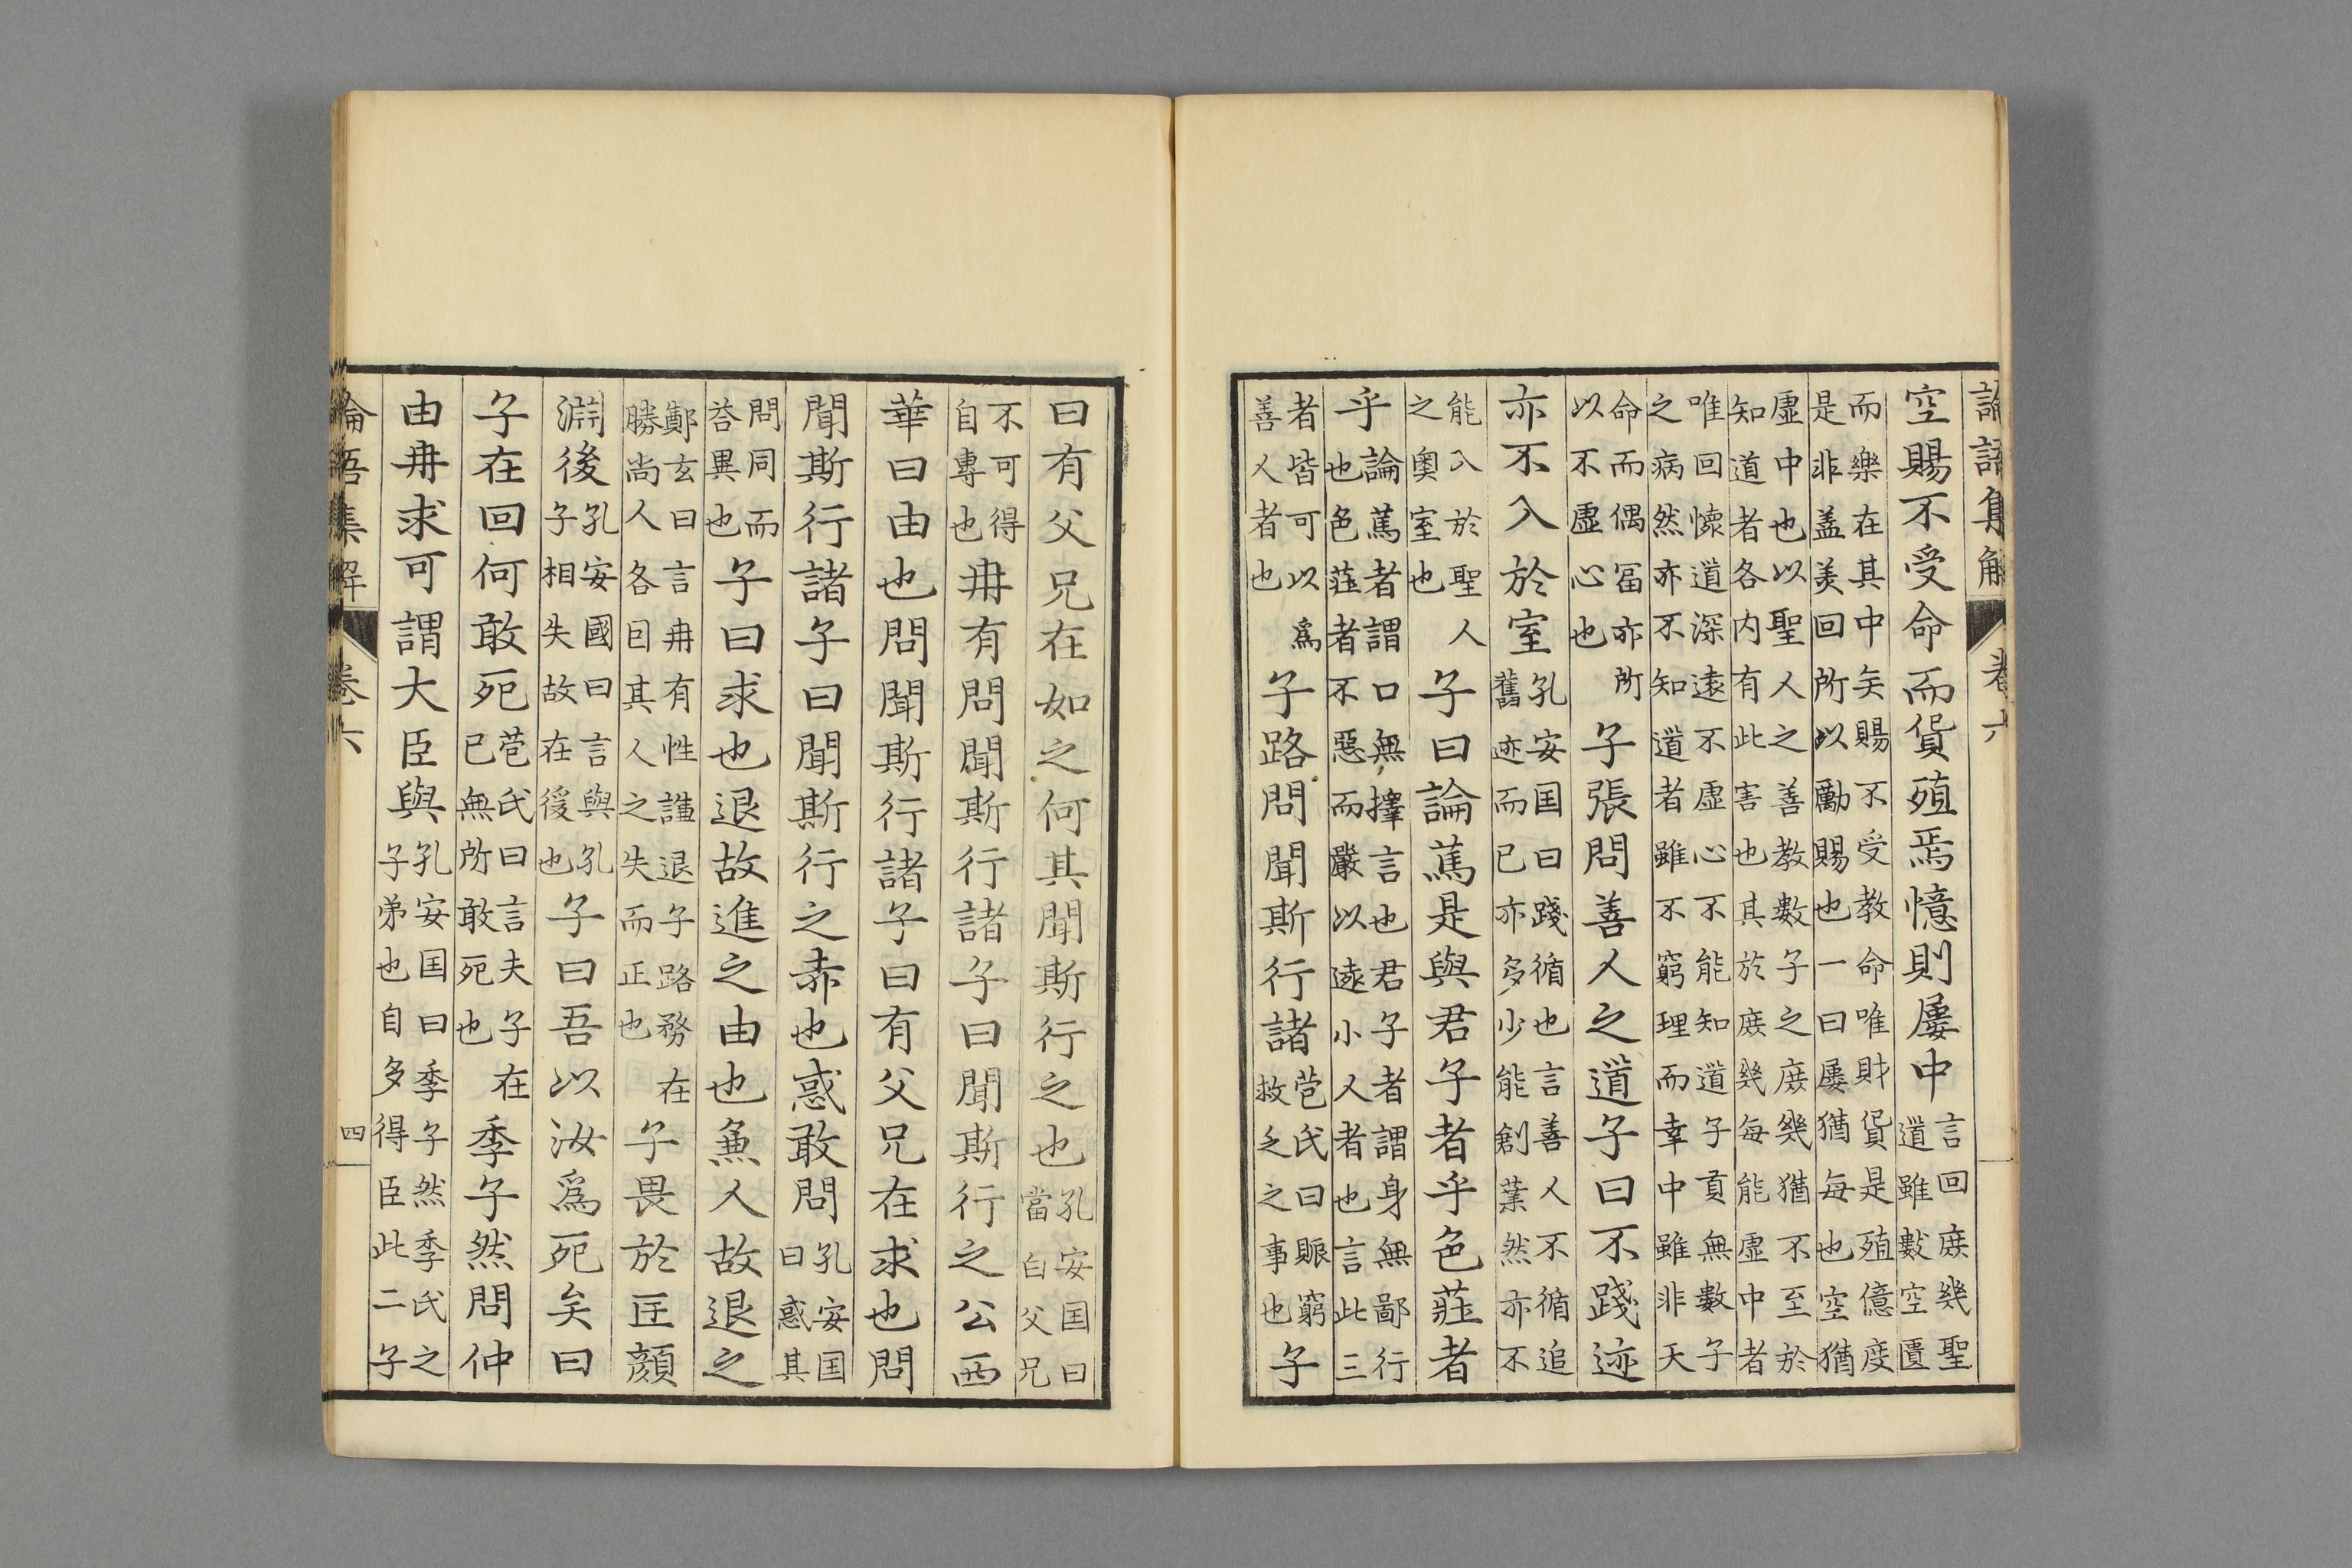 論語集解 卷六
空賜不受命而貨殖焉憶則屢中言回庶幾聖道雖數空匱
而樂在其中矣賜不受教命唯財貨是殖億度
是非盖羙回所以勵賜也一曰屢猶每也空猶
虛中也以聖人之善教數子之庶幾猶不至於
知道者各内有此害也其於庶幾每能虛中者
唯回懷道深遠不虛心不能知道子貢無數子
之病然亦不知道者雖不窮理而幸中雖非天
命而偶冨亦所以不虛心也子張問善人之道子曰不踐迹
亦不入於室孔安国曰踐循也言善人不循追舊迹而已亦多少能創業然亦不
能入於聖人之奧室也子曰論篤是與君子者乎色莊者
乎論篤者謂口無擇言也君子者謂身無鄙行也色莊者不惡而嚴以遠小人者也言此三
者皆可以爲善人者也子路問聞斯行諸苞氏曰賑窮救乏之事也子
曰有父兄在如之何其聞斯行之也孔安国曰當白父兄
不可得自專也冉有問聞斯行諸子曰聞斯行之公西
華曰由也問聞斯行諸子曰有父兄在求也問
聞斯行諸子曰聞斯行之赤也惑敢問孔安国曰惑其
問同而荅異也子曰求也退故進之由也兼人故退之
鄭玄曰言冉有性謙退子路務在勝尚人各因其人之失而正也子畏於匡顔
淵後孔安國曰言與孔子相失故在後也子曰吾以汝爲死矣曰
子在回何敢死苞氏曰言夫子在已無所敢死也季子然問仲
由冉求可謂大臣與孔安国曰季子然季氏之子弟也自多得臣此二子
論語集解 卷六 四